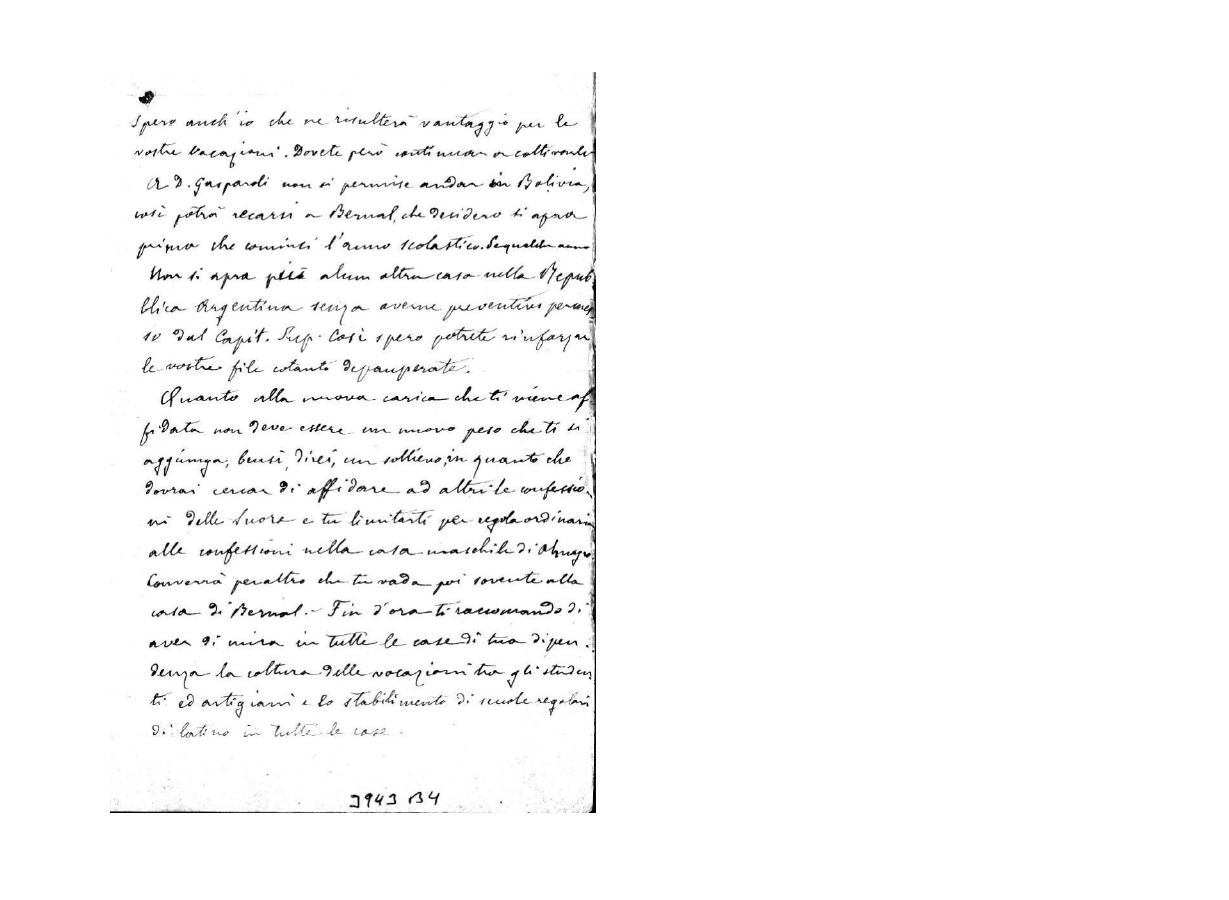 Spero anch'io che ne risulterà vantaggio per le
vostre vocazioni. Dovete però continuar a coltivarle
A D. Gaspardi non si permise andar in Bolivia,
così potrà recarsi a Bernal, che desidero si apra
prima che cominci l'anno scolastico.
Non si apra più alcun altra casa nella Repub
blica Argentina senza averne preventivo permes
so dal Capit. Sup. Così spero potrete rinforzar
le vostre file cotanto depauperate.
Quanto alla nuova carica che ti viene af
fidata non deve essere un nuovo peso che ti si
aggiunga, bensì, direi, un sollievo, in quanto che
dovrai cercar di affidare ad altri le confessio
ni delle Suore e tu limitarti per regola ordinaria
alle confessioni nella casa maschile di Almagro.
Converrà peraltro che tu vada poi sovente alla
casa di Bernal. - Fin d'ora ti raccomando di
aver di mira in tutte le case di tua dipen-
denza la coltura delle vocazioni tra gli studen
ti ed artigiani e lo stabilimento di scuole regolari
di latino in tutte le case.
3943 B4